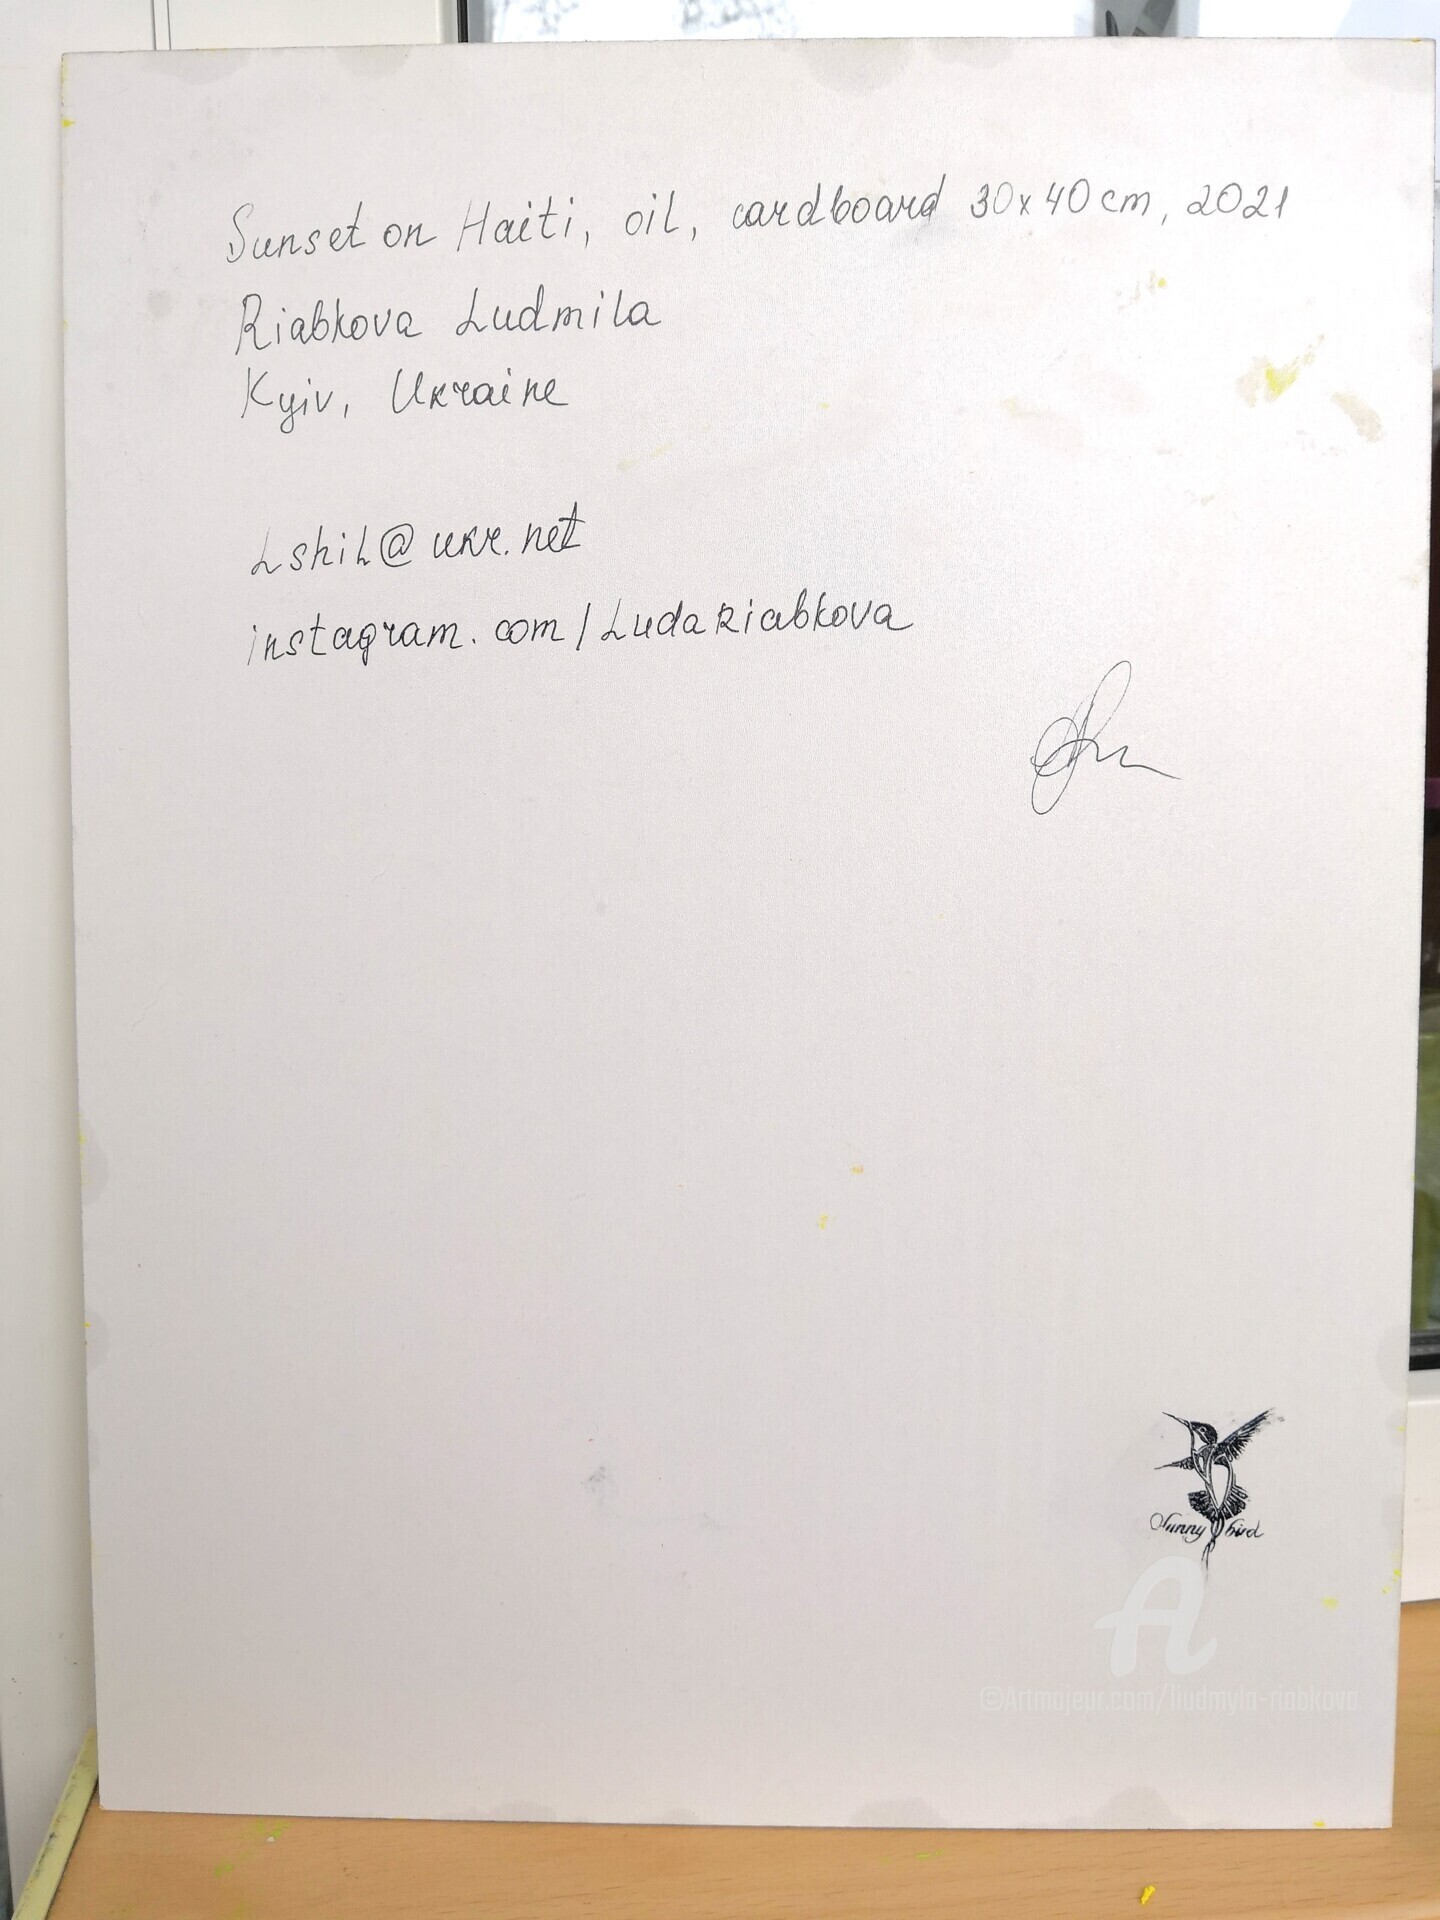 Sunset on Haiti, oil, cardboard 30x40cm, 2021
Riabkova Ludmila
Kyiv, Ukraine
Lshil@ukr.net
instagram.com/LudaRiabkova
Sunny bird
©Artmajeur.com/liudmyla-riabkova